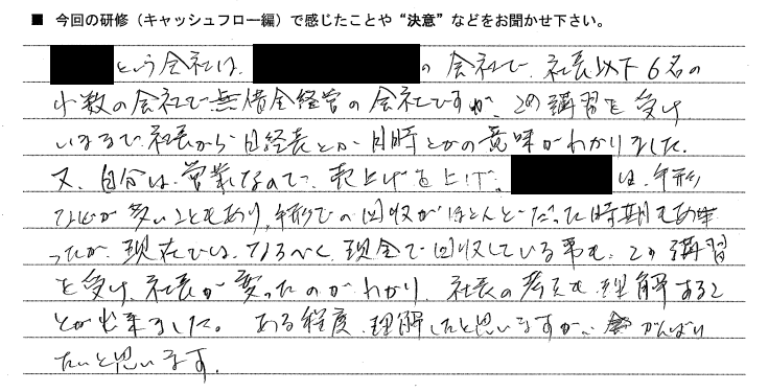 ■ 今回の研修（キャッシュフロー編）で感じたことや“決意”などをお聞かせ下さい。
という会社は、の会社で、社長以下6名の
少数の会社で無借金経営の会社ですが、この講習を受け
いままで社長から日経表とか日時とかの意味がわかりました。
又、自分は、営業なので、売上げを上げ、は、手形
が多いこともあり、手形での回収がほとんどだった時期もあ
ったが、現在では、なるべく現金で回収している事も、この講習
を受け、社長が変ったのがわかり、社長の考えも理解するこ
とが出来ました。ある程度、理解したと思いますが、がんばり
たいと思います。